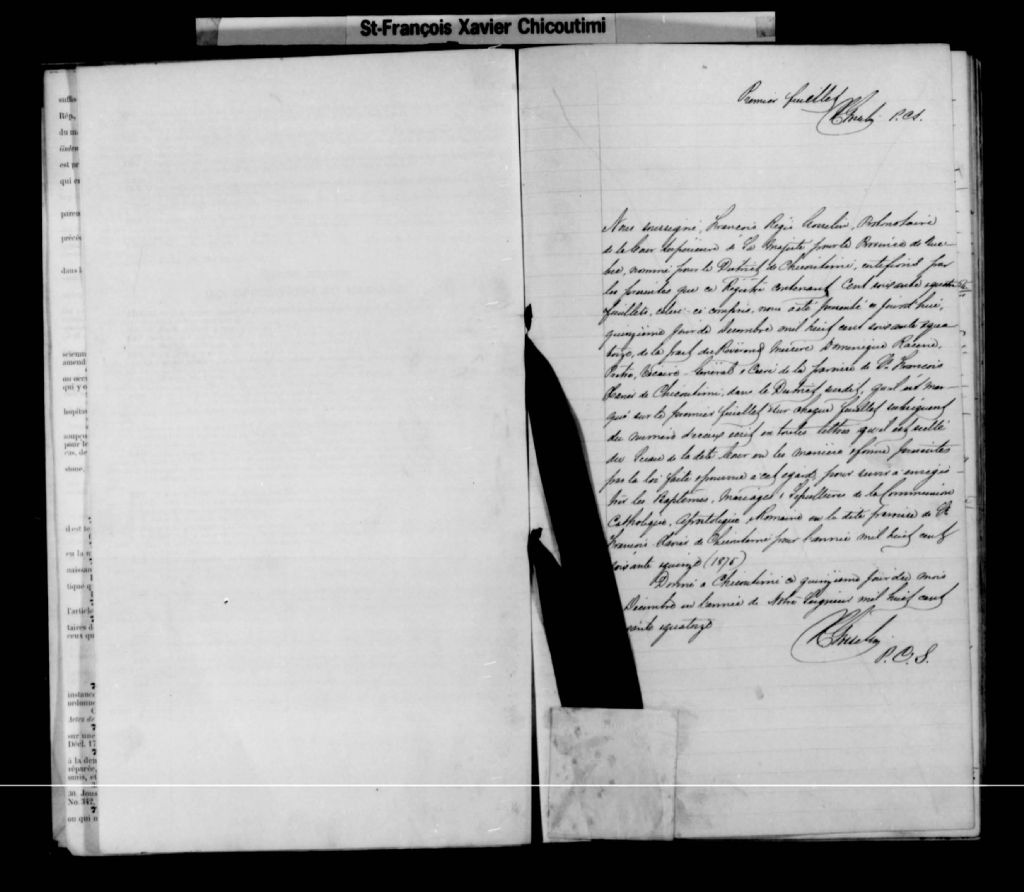 St-François Xavier Chicoutimi
suffis
Rép.
du m
est pr
qui e
paren
précé
dans l
sciemm
amend
au occu
qui y o
hopita
soupço
pour le
cas, de
il est te
en la v
naissan
tique q
l'article
taires d
ceux qu
instance
ordonne
Actes de
sur une
Décl. 17
à la den
séparée,
mais, et
30. Jous
No. 342.
ou qui n
Premier feuillet
Gosselin P.C.S.
Nous soussigné, François Regis Gosselin, Protonotaire
de la Cour Supérieure de Sa Majesté pour la Province de Qué-
bec, nommé pour le District de Chicoutimi, certifions par
les présentes que ce Registre contenant Cent soixante et quatre
feuillets, celui-ci compris, nous a été présenté ce jourd'hui,
quinzième jour de Decembre mil huit cent soixante et qua-
torze, de la part du Révérend Messire Dominique Racine,
Prêtre, Vicaire-Général & Curé de la paroisse de St. François
Xavier de Chicoutimi, dans le District susdit, qu'il est mar-
qué sur le premier feuillet & sur chaque feuillet subséquent
du numero d'iceux écrit en toutes lettres qu'il est scellé
du Sceau de la dite Cour en la manière & forme prescrites
par la loi faite & pourvue à cet égard, pour servir à enregis-
trer les Baptêmes, Mariages & Sépultures de la Communion
Catholique, Apostolique & Romaine en la dite paroisse de St
François Xavier de Chicoutimi pour l'année mil huit cent
soixante et quinze (1875)
Donné à Chicoutimi ce quinzième jour du mois
Décembre en l'année de Notre Seigneur mil huit cent
soixante et quatorze
Gosselin
P.C.S.